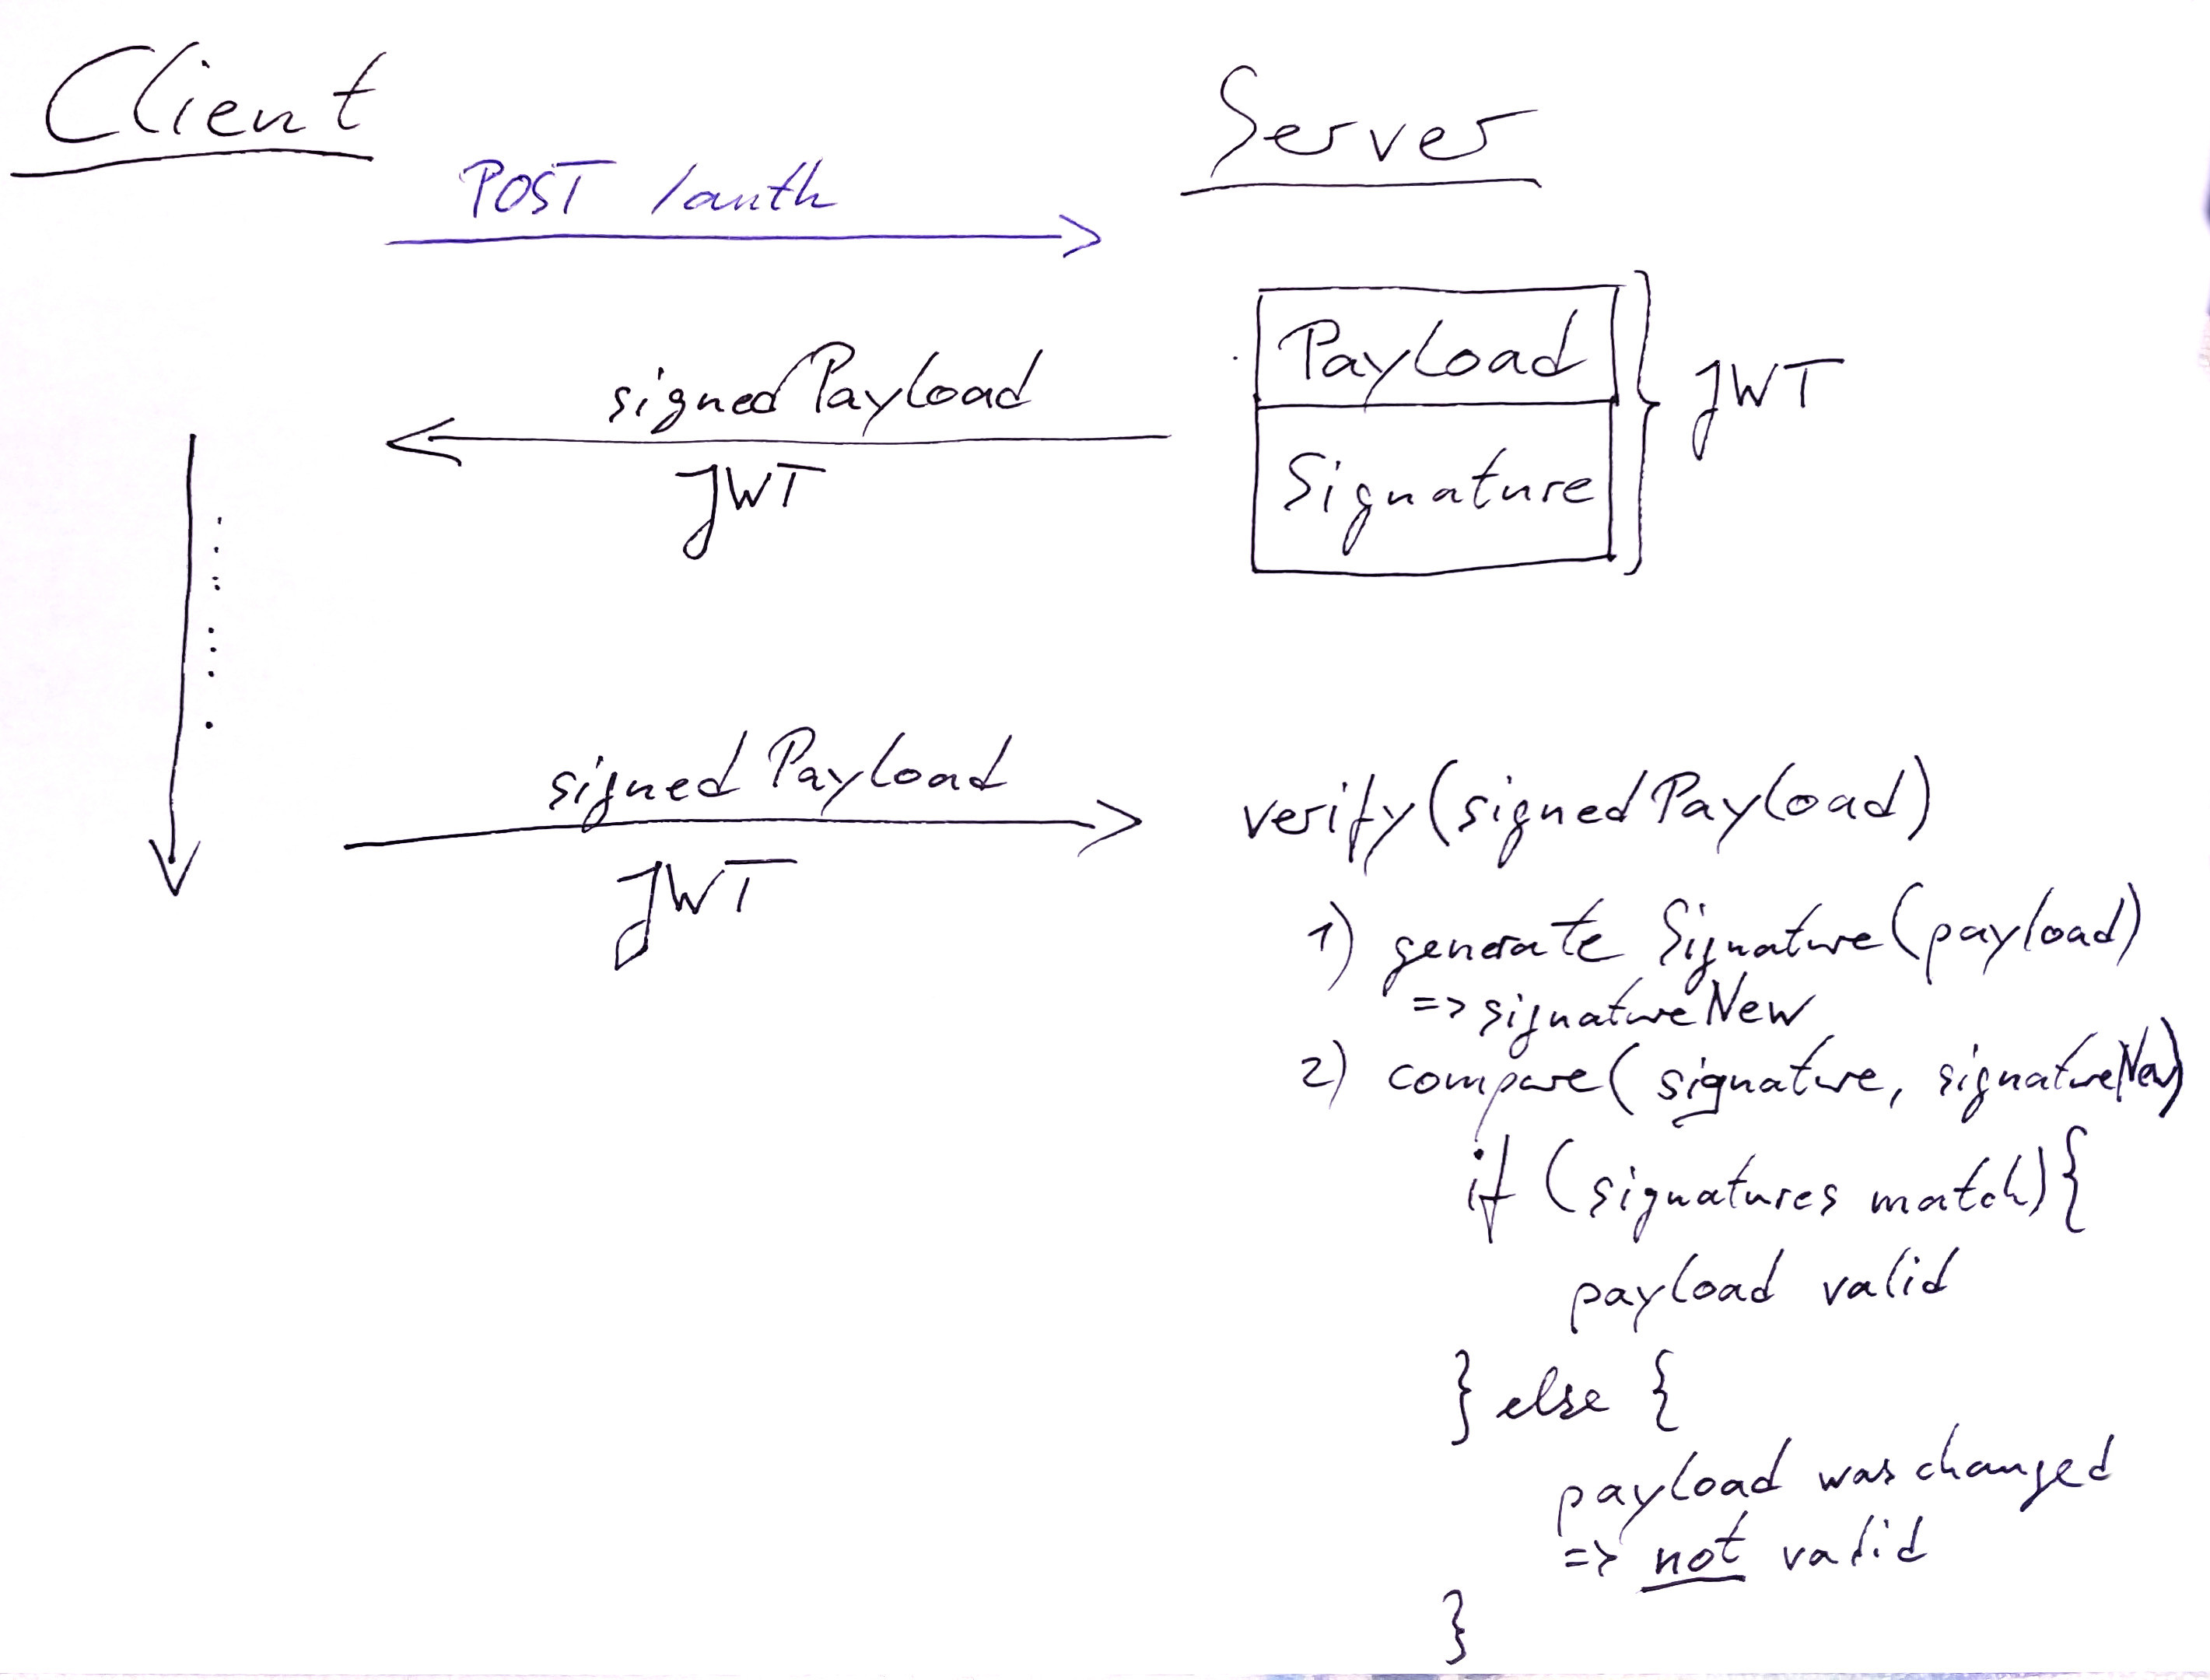 Client
Server
POST /auth
Payload
Signature
JWT
signedPayload
JWT
signedPayload
JWT
verify(signedPayload)
1) generate Signature(payload)
=> signatureNew
2) compare(signature, signatureNew)
if (signatures match){
payload valid
} else {
payload was changed
=> not valid
}